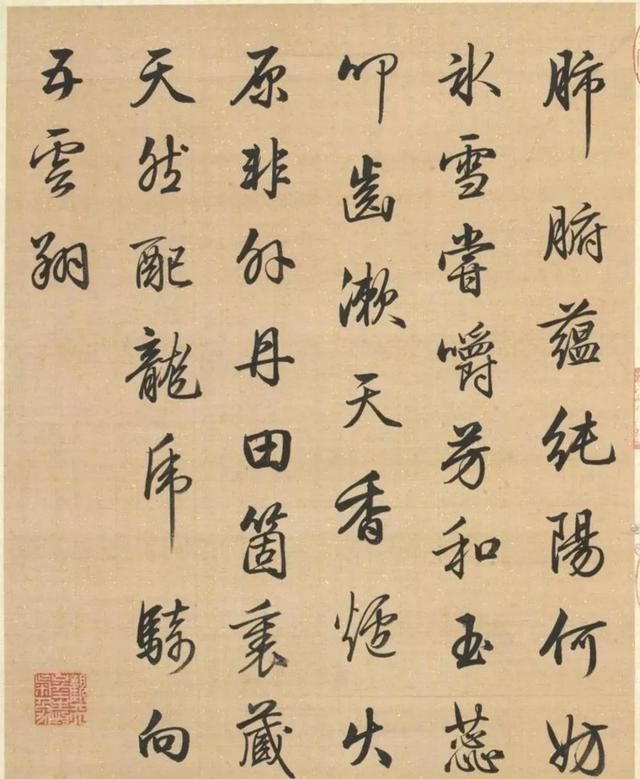 肺腑蘊純陽何妨
冰雪嘗嚼芳和玉蕊
叩齒漱天香爐火
原非外丹田箇裏藏
天然配龍虎騎向
五雲翔